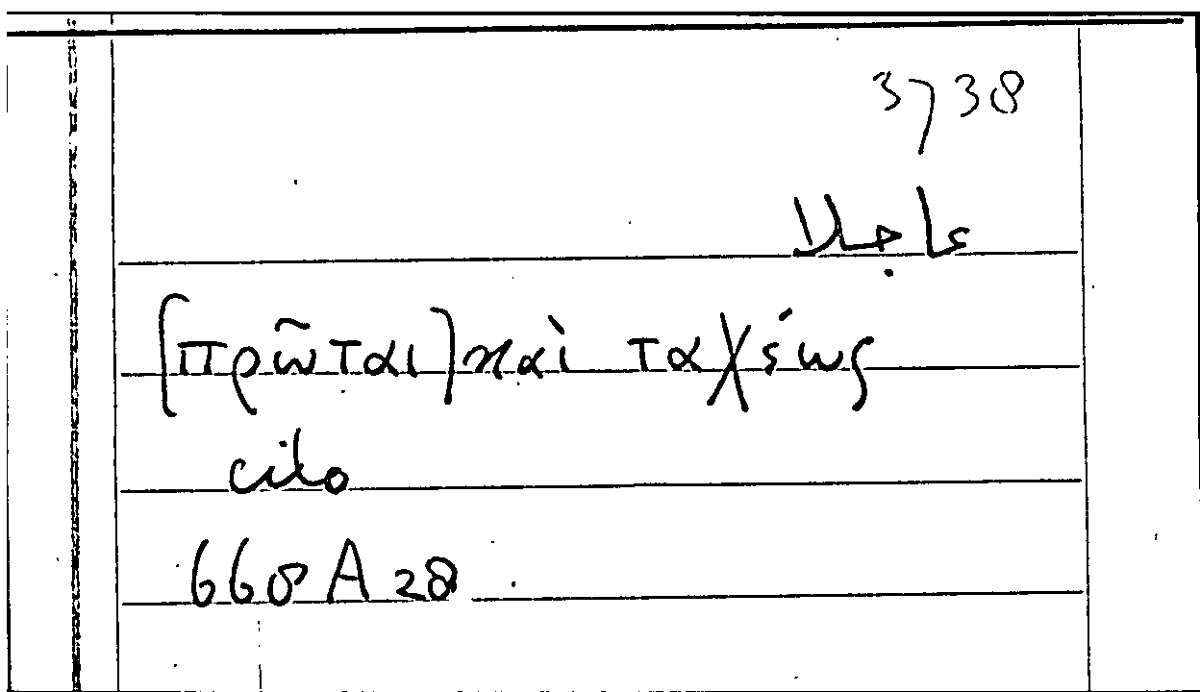 3738
عاجلا
[πρῶται] καὶ ταχέως
cito
668A28